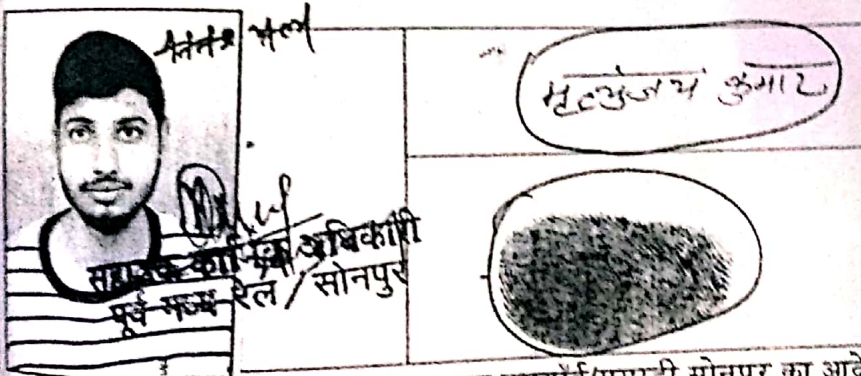 मृत्युंजय कुमार
सहायक कार्मिक अधिकारी
पूर्व मध्य रेल / सोनपुर
सोनपुर का आदे